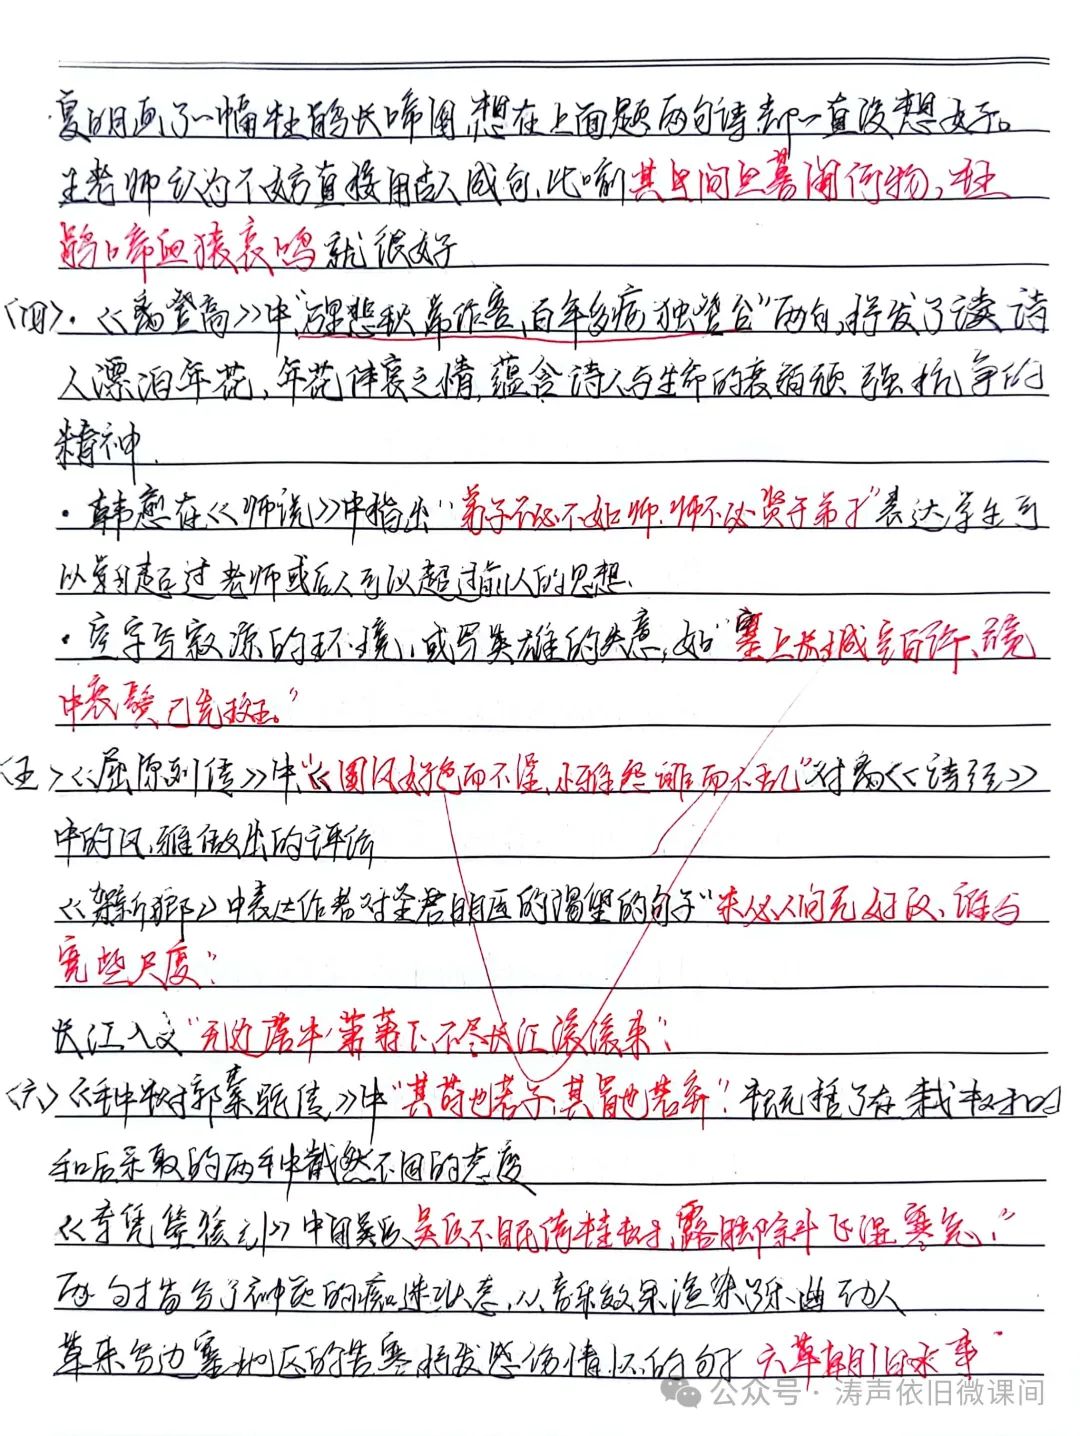 夏明画了一幅杜鹃长啼图,想在上面题两句诗,却一直没想好。
王老师认为不妨直接用古人成句,比喻其与间旦暮闻何物,杜
鹃啼血猿哀鸣就很好
(四)·《登高》中"万里悲秋常作客,百年多病独登台"两句,抒发了诗
人漂泊年花,年花体衰之情,蕴含诗人与生命的衰顽强抗争的
精神.
·韩愈在《师说》中指出"弟子不必不如师,师不必贤于弟子"表达学生可
以超过老师或后人可以超过前人的思想.
·空字写寂凉的环境,或写英雄的失意,如"塞上长城空自许,镜
中衰鬓已先斑。"
(五)《屈原列传》中,"《国风好色而不淫,小雅怨诽而不乱"对《诗经》
中的风、雅做出的评价
《贺新郎》中表达作者对圣君的渴望的句子"未必人间无好汉、谁与
宽些尺度"
长江入文"无边落木萧萧下,不尽长江滚滚来"
(六)《种树郭橐驼传》中"其莳也若子,其置也若弃".概括了在栽树和
和后采取的两种截然不同的态度
《李凭箜篌引》中用吴质吴质不眠倚桂树,露脚斜飞湿寒兔."
两句描写了神的痴迷状态,以音乐效果渲染乐曲动人
草来写边塞地区的苦寒抒发感伤情怀的句 六草朝旧水事
公众号·涛声依旧微课间